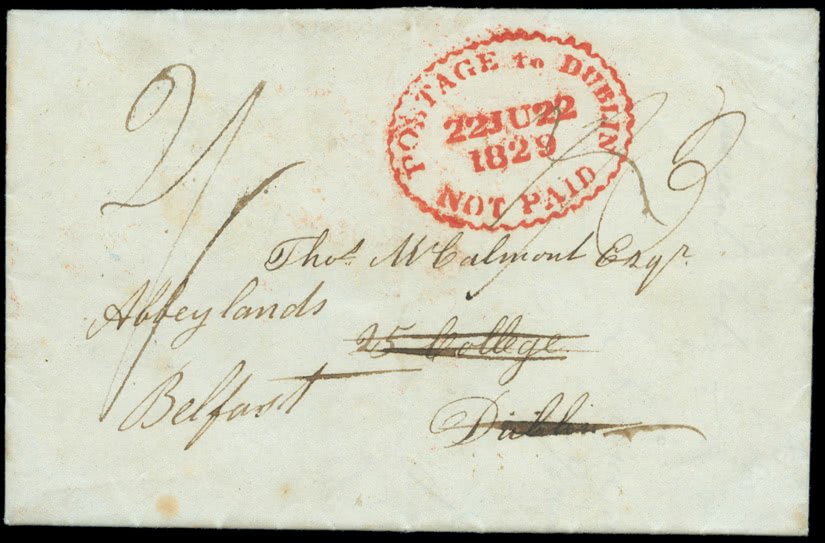 POSTAGE to DUBLIN
22JU22
1829
NOT PAID
2/
Thos. McCalmont Esqr.
Abbeylands
25 College
Belfast
Dublin